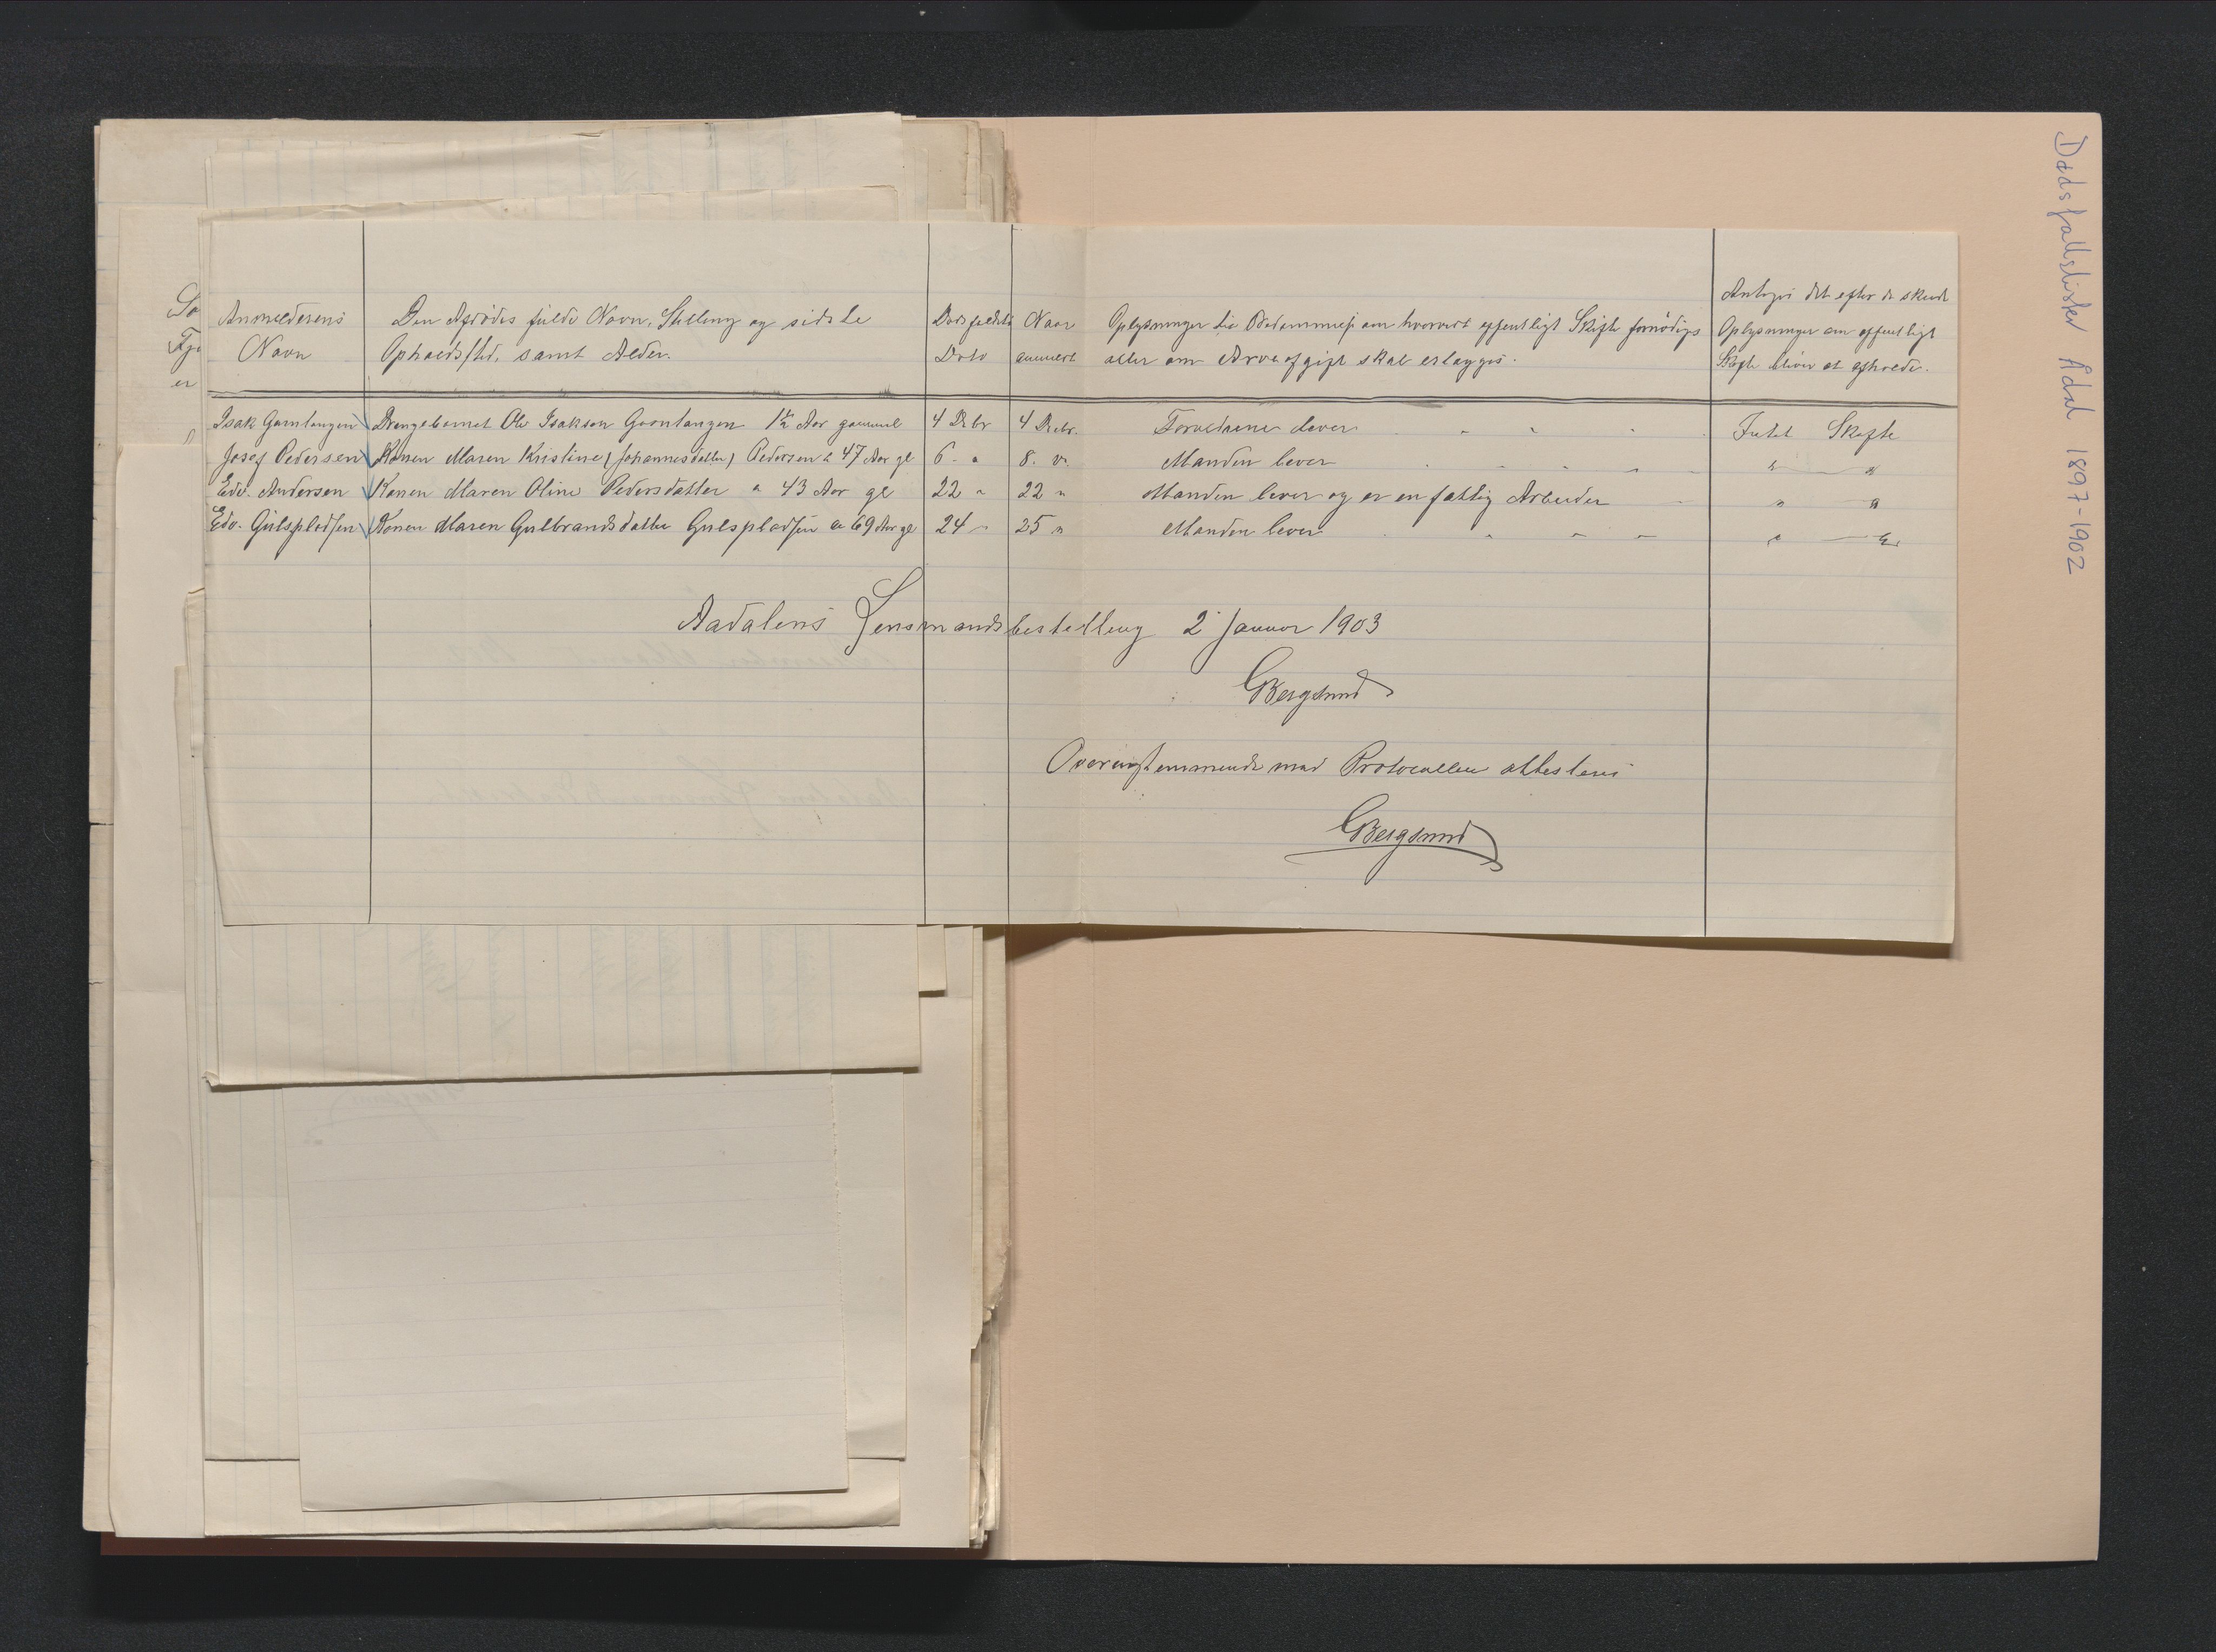 Dødsfallslister Ådal 1897-1902
Anmelderens
Navn
Den Afdødes fulde Navn, Stilling og sidste
Opholdssted, samt Alder.
Dødsfaldets
Dato
Naar
anmeldt
Oplysninger til Bedømmelse om hvorvidt offentligt Skifte fornødiges
eller om Arveafgift skal erlægges.
Antages det efter de skeede
Oplysninger om offentligt
Skifte bliver at afholde.
Isak Gamlangen Drengebarnet Ole Isaksen 1½ Aar gammel 4 Debr 4 Debr. Forældrene lever Intet Skifte
Josef Pedersen Konen Maren Kristine (Johannesdatter) Pedersen a 47 Aar gl 6 - " 8. " Manden lever " — "
Edv. Andersen Konen Maren Oline Pedersdatter a 43 Aar gl 22 " 22 " Manden lever og er en fattig Arbeider " — "
Edv. Gulspladsen Konen Maren Gulbrandsdatter Gulspladsen a 69 Aar gl 24 " 25 " Manden lever " — "
Aadalens Lensmandsbestilling 2 Januar 1903
GBergsund
Overensstemmende med Protocollen attesteres
GBergsund